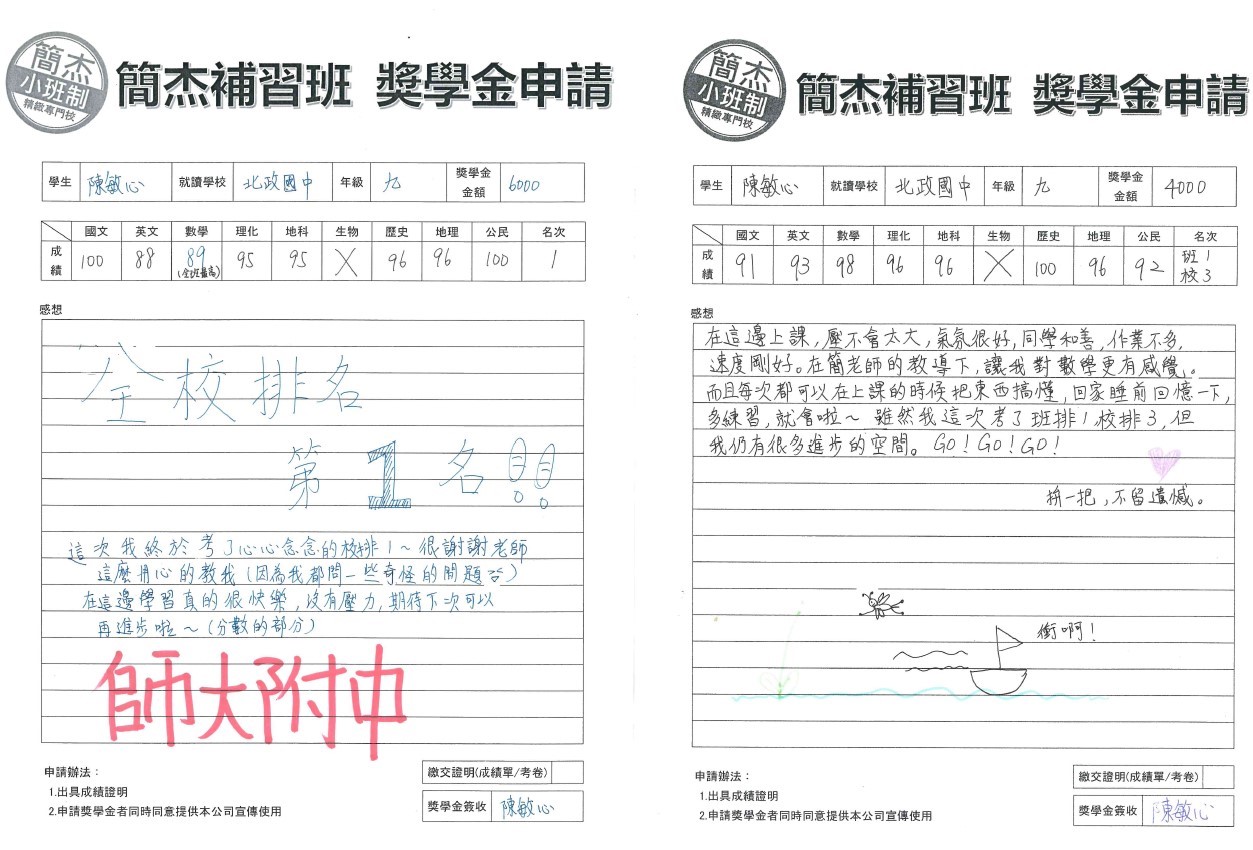 簡杰
小班制
精緻專門校
簡杰補習班 獎學金申請
學生 陳敏心 就讀學校 北政國中 年級 九 獎學金金額 6000
國文 英文 數學 理化 地科 生物 歷史 地理 公民 名次
成績 100 88 89 95 95 X 96 96 100 1
(全班最高)
感想
全校排名
第1名!!
這次我終於考了心心念念的校排1~很謝謝老師
這麼用心的教我(因為我都問一些奇怪的問題)
在這邊學習真的很快樂,沒有壓力,期待下次可以
再進步啦~(分數的部分)
師大附中
申請辦法:
1.出具成績證明
2.申請獎學金者同時同意提供本公司宣傳使用
繳交證明(成績單/考卷)
獎學金簽收 陳敏心
簡杰
小班制
精緻專門校
簡杰補習班 獎學金申請
學生 陳敏心 就讀學校 北政國中 年級 九 獎學金金額 4000
國文 英文 數學 理化 地科 生物 歷史 地理 公民 名次
成績 91 93 98 96 96 X 100 96 92 班1 校3
感想
在這邊上課,壓不會太大,氣氛很好,同學和善,作業不多,
速度剛好。在簡老師的教導下,讓我對數學更有感覺。
而且每次都可以在上課的時候把東西搞懂,回家睡前回憶一下,
多練習,就會啦~ 雖然我這次考了班排1,校排3,但
我仍有很多進步的空間。GO!GO!GO!
拚一把,不留遺憾。
衝啊!
申請辦法:
1.出具成績證明
2.申請獎學金者同時同意提供本公司宣傳使用
繳交證明(成績單/考卷)
獎學金簽收 陳敏心